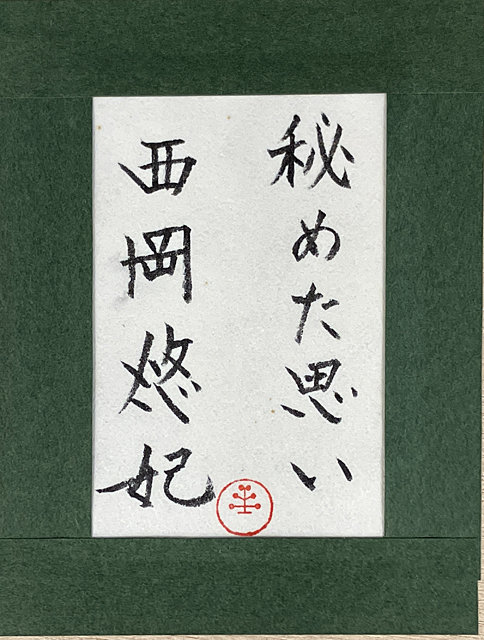 秘めた思い
西岡悠妃